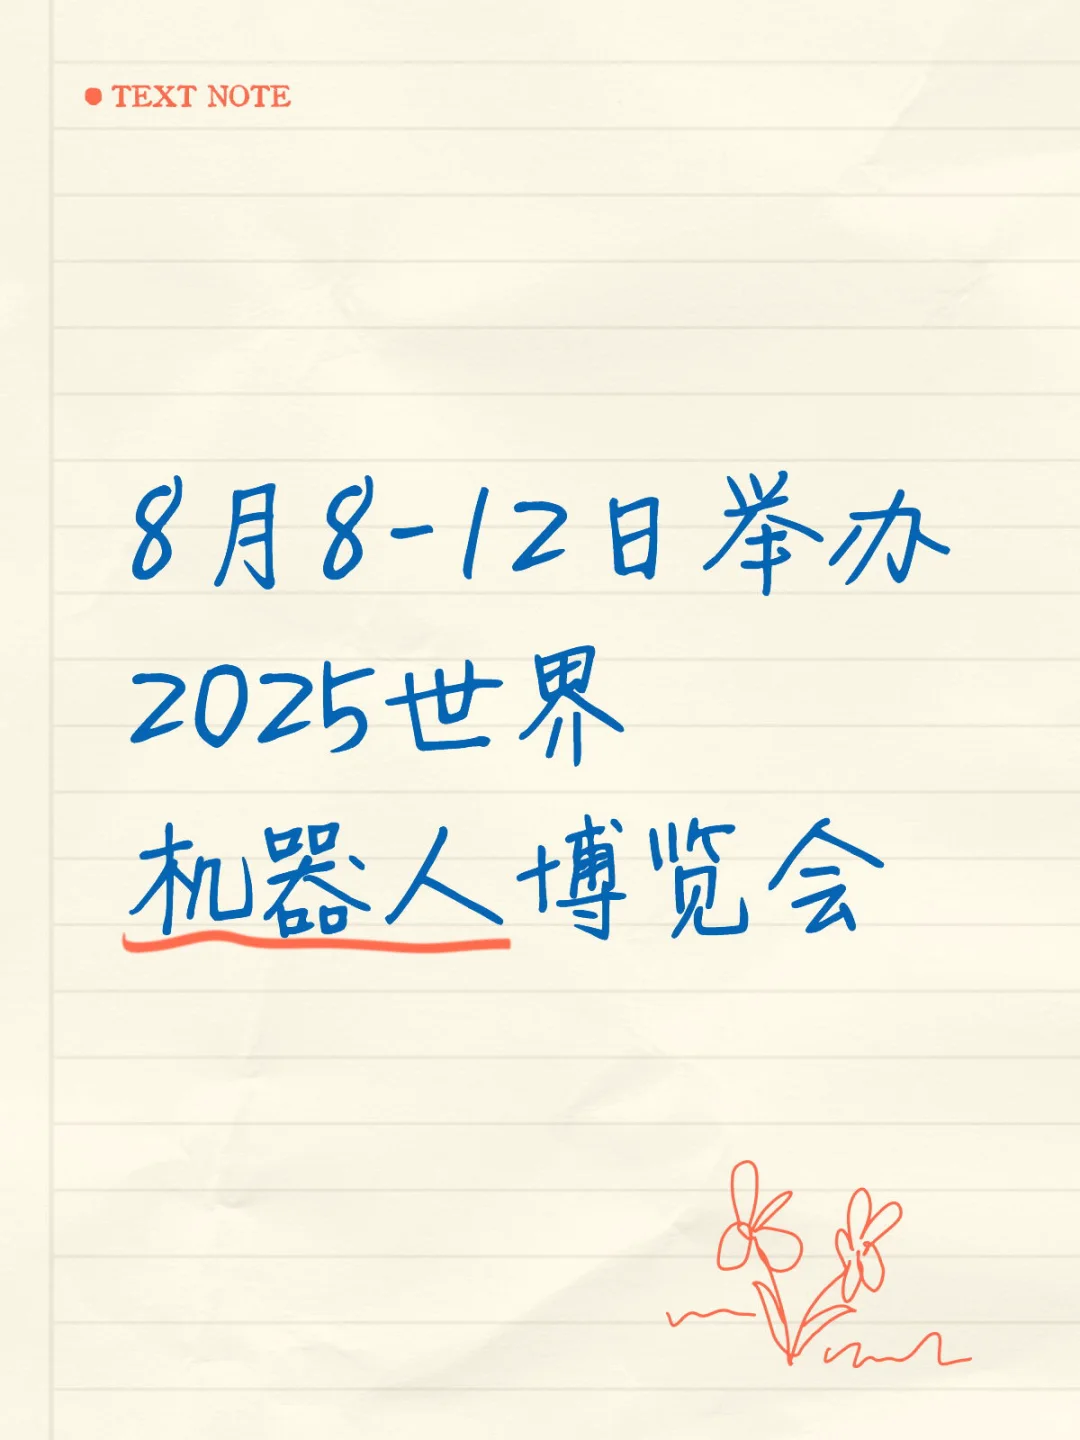 TEXT NOTE
8月8-12日举办
2025世界
机器人博览会